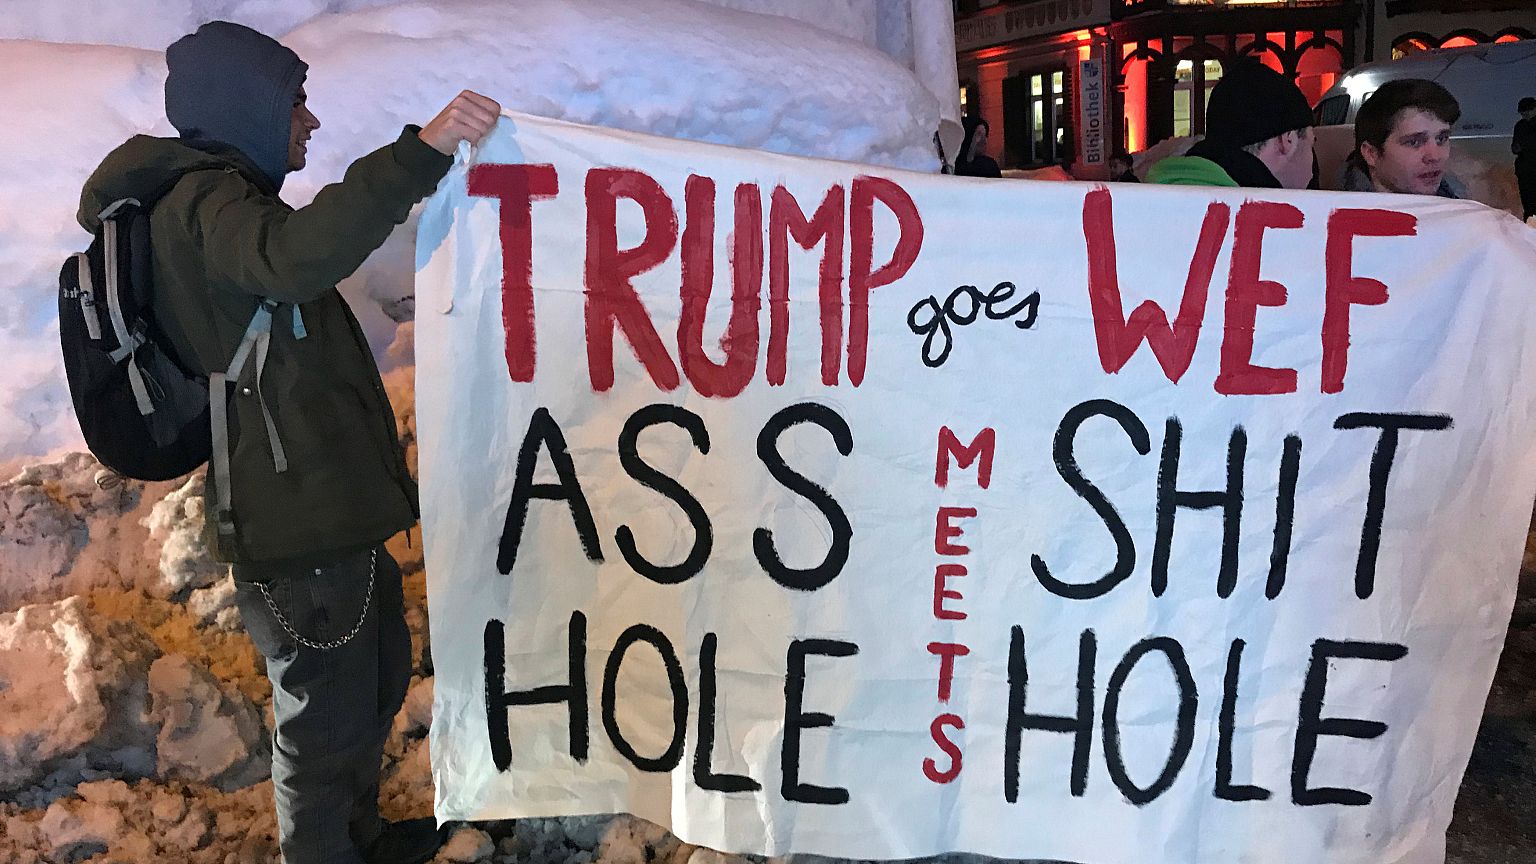 TRUMP goes WEF
ASS MEETS SHIT
HOLE HOLE
Bibliothek